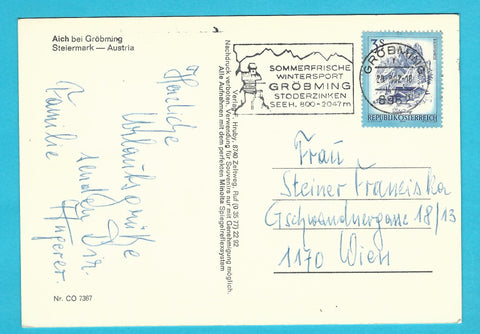 Aich bei Gröbming
Steiermark — Austria
Herzliche
Urlaubsgrüße
senden Dir
Familie
Nr. CO 7367
Verlag F. Hruby, 8740 Zeltweg, Ruf (0 35 77) 22 92
Nachdruck verboten. Verwendung für Souvenirs nur mit Genehmigung möglich.
Alle Aufnahmen mit dem perfekten Minolta Spiegelreflexsystem
SOMMERFRISCHE
WINTERSPORT
GRÖBMING
STODERZINKEN
SEEH. 800-2047m
GRÖBMING
3S
REPUBLIK ÖSTERREICH
Frau
Steiner Franziska
Gschwandnergasse 18/13
1170 Wien